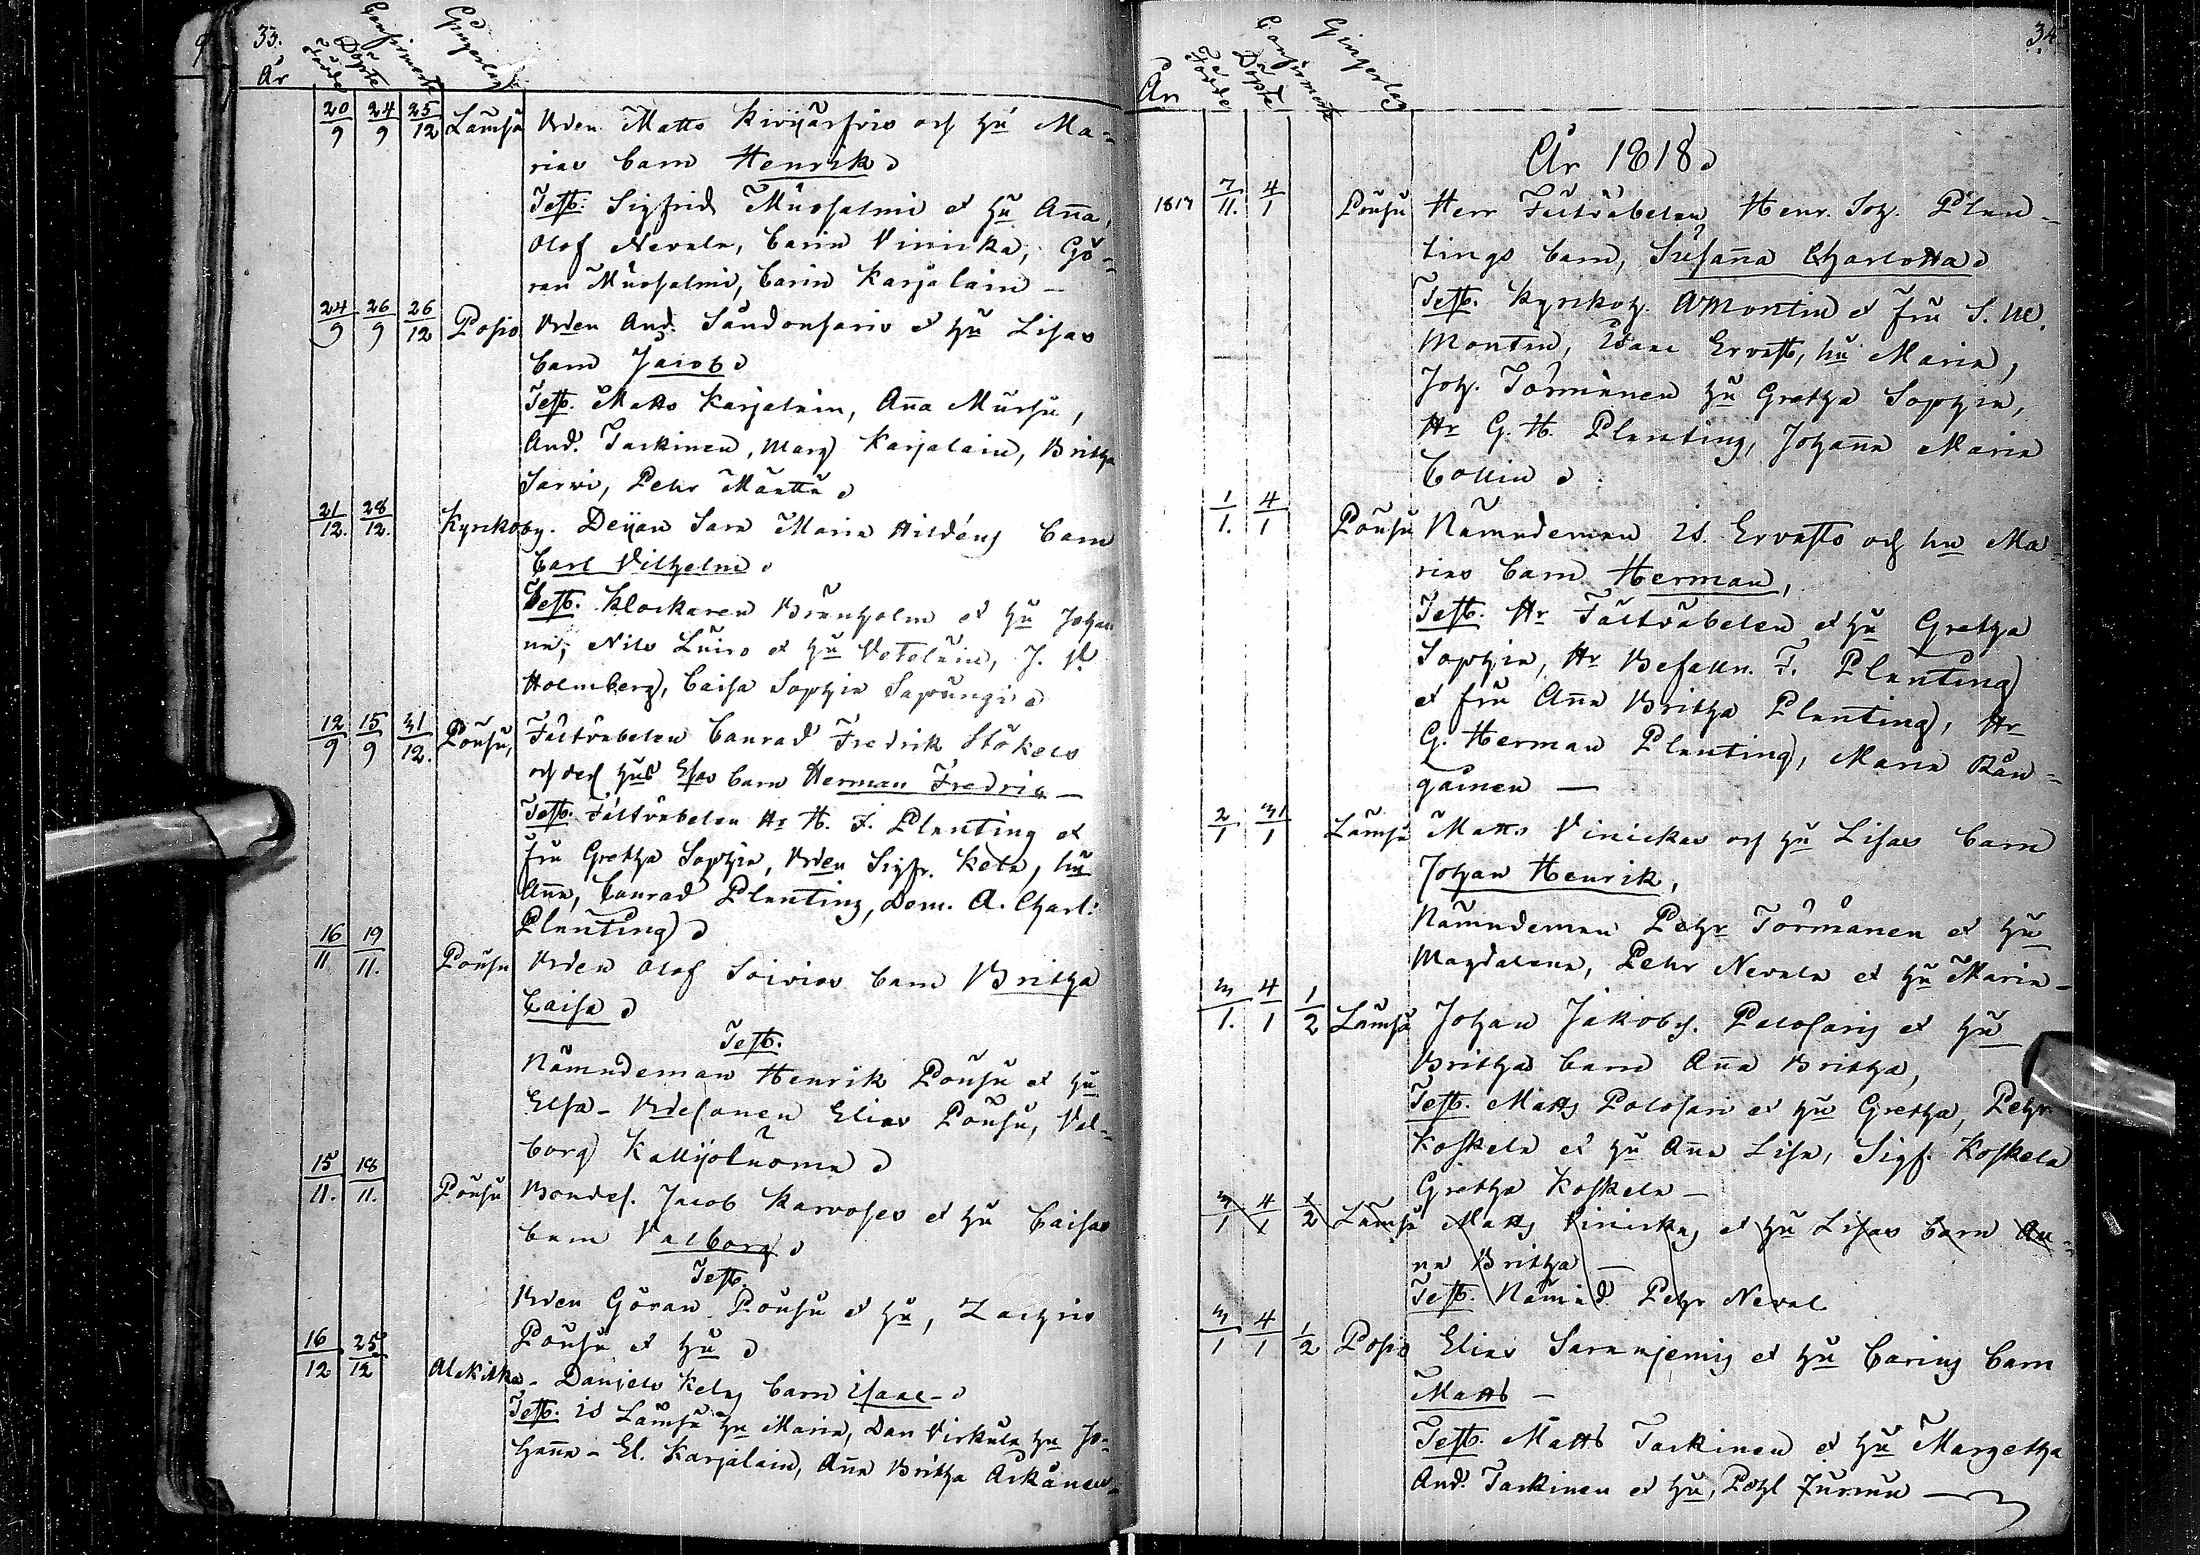 33.
År Födde Döpte Confirmerte Gingerlag
20/9 24/9 25/12 Lämsä Bden Matts Kirijärfvis och Hu Ma=
rias barn Henrik
Test: Sigfrid Mursalmi et Hu Anna,
Olof Nevala, Carin Vinicka, Gö=
ran Mursalmi, Carin Karjalain
24/9 26/9 26/12 Posio Bden And. Saudonsaris et Hu Lisas
barn Jacob
Test. Matts Karjalain, Anna Mursu,
And. Tarkinen, Marg Karjalain, Britha
Sarvi, Pehr Määttä
21/12. 28/12. Kyrkoby. Deijan Sara Maria Hildéns barn
Carl Vilhelm
Test. Klockaren Brunholm et Hu Johan
na, Nils Luiro et Hu Vetelain, J. V.
Holmberg, Caisa Sophia Sapungi
12/9 15/9 31/12. Pousu, Fältväbelen Conrad Fredrik Stökels
och des Hus Elsas barn Herman Fredric
Test. Fältväbelen Hr H. J. Planting et
fru Gretha Sophia, Bden Sigfr. Kela, hu
Anna, Conrad Planting, Dem. A. Charl:
Planting
16/11 19/11. Pousu Bden Olof Soivios barn Britha
Caisa
Test.
Nämndeman Henrik Pousu et Hu
Elsa - Bdesonen Elias Pousu, Val=
borg Kallijoluoma
15/11. 18/11. Pousu Bondes. Jacob Karvoses et Hu Caisas
barn Valborg
Test.
Bden Göran Pousu et Hu, Zachris
Pousu et Hu
16/12 25/12 Alakitka - Daniels Kelas barn Isaac
Test. Is Lämsä Hu Maria, Dan Virkula Hu Jo=
hanna - El. Karjalain, Anna Britha
34.
År Födde Döpte Confirmerte Gingerlag
År 1818
1817 7/11. 4/1 Pousu Herr Fältväbelen Henr. Joh. Plan=
tings barn, Susanna Charlotta
Test. Kyrkoh. A Montin et fru S. M.
Montin, Isaac Ervast, hu Maria,
Joh. Törmänen Hu Gretha Sophia,
Hr G. H. Planting, Johanna Maria
Collin
1/1. 4/1 Pousu Nämndeman Is. Ervasts och hu Ma
rias barn Herman,
Test. Hr Fältväbelen et Hu Gretha
Sophia, Hr Befalln. F. Planting
et fru Anna Britha Planting, Hr
G. Herman Planting, Maria Rån=
gainen
2/1 31/1 Lämsä Matts Vinickas och Hu Lisas barn
Johan Henrik,
Nämndeman Pehr Törmänen et Hu
Magdalena, Pehr Nevala et Hu Maria
3/1. 4/1 1/2 Lämsä Johan Jakobs. Palosaris et Hu
Brithas barn Anna Britha,
Test. Matts Polosari et Hu Gretha, Pehr
Koskela et Hu Anna Lisa, Sigf. Koskela
Gretha Koskela
3/1 4/1 1/2 Lämsä Matts Vinickas et Hu Lisas barn An=
na Britha
Test. Nämnd. Pehr Neval
3/1 4/1 1/2 Posio Elias Saranjemis et Hu Carins barn
Matts
Test. Matts Tarkinen et Hu Margetha
And. Tarkinen et Hu, Pohl Jurmu